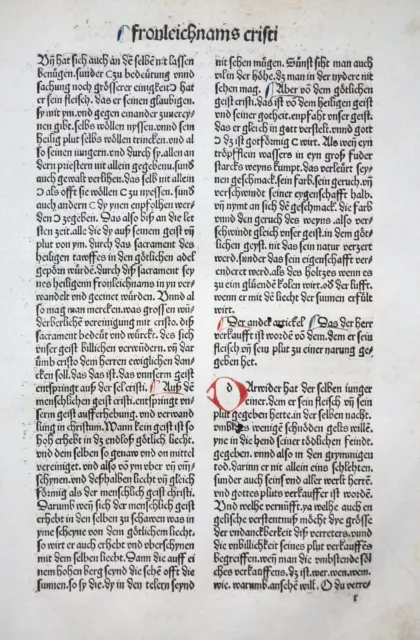 fronleichnams cristi
Vñ hat sich auch an dē selbē nit lassen
benügen. sunder zu bedeütung vnnd
sachung noch grösserer einigkeit hat
er sein fleisch. das er seinen glaubigen.
sy mit ym. vnd gegen einander zuuerey-
nen gibt. selbs wöllen nyssen. vnnd sein
heilig plut selbs wöllen trincken. vnd al
so seinen iungern. vnd durch sy. allen an
dern priestern nit allein zegebenn. sund
auch gewalt verlihen. das selb nit allein
als offt sie wöllen zu nyessen. sund
auch andern dy ynen enpfolhen wer-
den zegeben. Das also diß an die let
sten zeit. alle die dy auß seinem geist vñ
plut von ym. durch das sacrament des
heiligen tawffes in den götlichen adel
geporn würdē. durch diß sacrament sey
nes heiligenn fronleichnams in yn ver-
wandelt vnd geeinet würden. Vnnd al
so mag man mercken. was grossen wū
derberlichē vereinigung mit cristo. diß
sacrament bedeüt vnd würckt. des sich
vnser geist billichen verwūdert. vñ dar
umb cristo dem herren ewiglichen dan-
cken sol. das das ist. das vnserm geist
entspringt auß der sel cristi. Auß dē
menschlichen geist cristi. entspringt vn-
serm geist aufferhebung. vnd verwand
lung in christum. Wann kein geist ist so
hoh erhebt in dz endloß götlich liecht.
vnd dem selben so genaw vnd on mittel
vereiniget. vnd also võ ym vber vñ vm-
schynen. vnd deßhalben liecht vñ gleich
förmig als der menschlich geist christi.
Darumb weñ sich der menschlich geist
erhebt in den selben zu schawen was in
yne scheyne von dem götlichen liecht.
so wirt er auch erhebt vnd vberschynen
mit dem selben liecht. Dann die auff ei
nem hohen berg seynd die sehē offt die
sunnen. so sy die. dy in den telern seynd
nit sehen mügen. Sunst siht man auch
vil in der höhe. dz man in der nydere nit
sehen mag. Aber võ dem götlichen
geist cristi. das ist võ dem heiligen geist
vnd seiner gotheit. enpfaht vnser geist.
das er gleich in gott verstelt. vnnd gott
dz ist gotförmig wirt. Als weñ eyn
tröpfflein wassers in eyn groß fuder
starcks weyns kumpt. das verleürt sey-
nen geschmack. sein farb. sein geruch. vñ
verschwindt seiner eygenschafft halb.
vñ nymt an sich dē geschmack. die farb
vnnd den geruch des weyns. also ver-
schwindt gleich vnser geist. in dem göt-
lichen geyst. nit das sein natur verzert
werd. sunder das sein eigenschafft ver-
enderet werd. als des holtzes wenn es
zu eim glüendē kolen wirt. oð der lufft.
wenn er mit dē liecht der sunnen erfült
wirt.
Der ander artickel Das der herr
verkaufft ist wordē võ dem. dem er sein
fleisch vñ sein plut zu einer narung ge-
geben het.
DArwider hat der selben iunger
einer. dem er sein fleisch vñ sein
plut gegeben hette. in der selben nacht.
vmb wenige schnöden gelts willē.
yne in die hend seiner tödlichen feindt.
gegeben. vnnd also in den grymmigen
tod. darinn er nit allein eins schlehten.
sunder auch seins vnd aller werlt herrē.
vnd gottes pluts verkauffer ist wordē.
Vnd welhe vernüfft. ya welhe auch en
gelische verstentnuß möcht dye grösse
der vndanckberkeit diß verreters. vnnd
die vnbillichkeit seines plut verkauffēs
begreiffen. weñ man die vmbstende söl
ches verkauffens. dz ist. wer. wen. wem.
wie. warumb. ansehē will. O du verre-